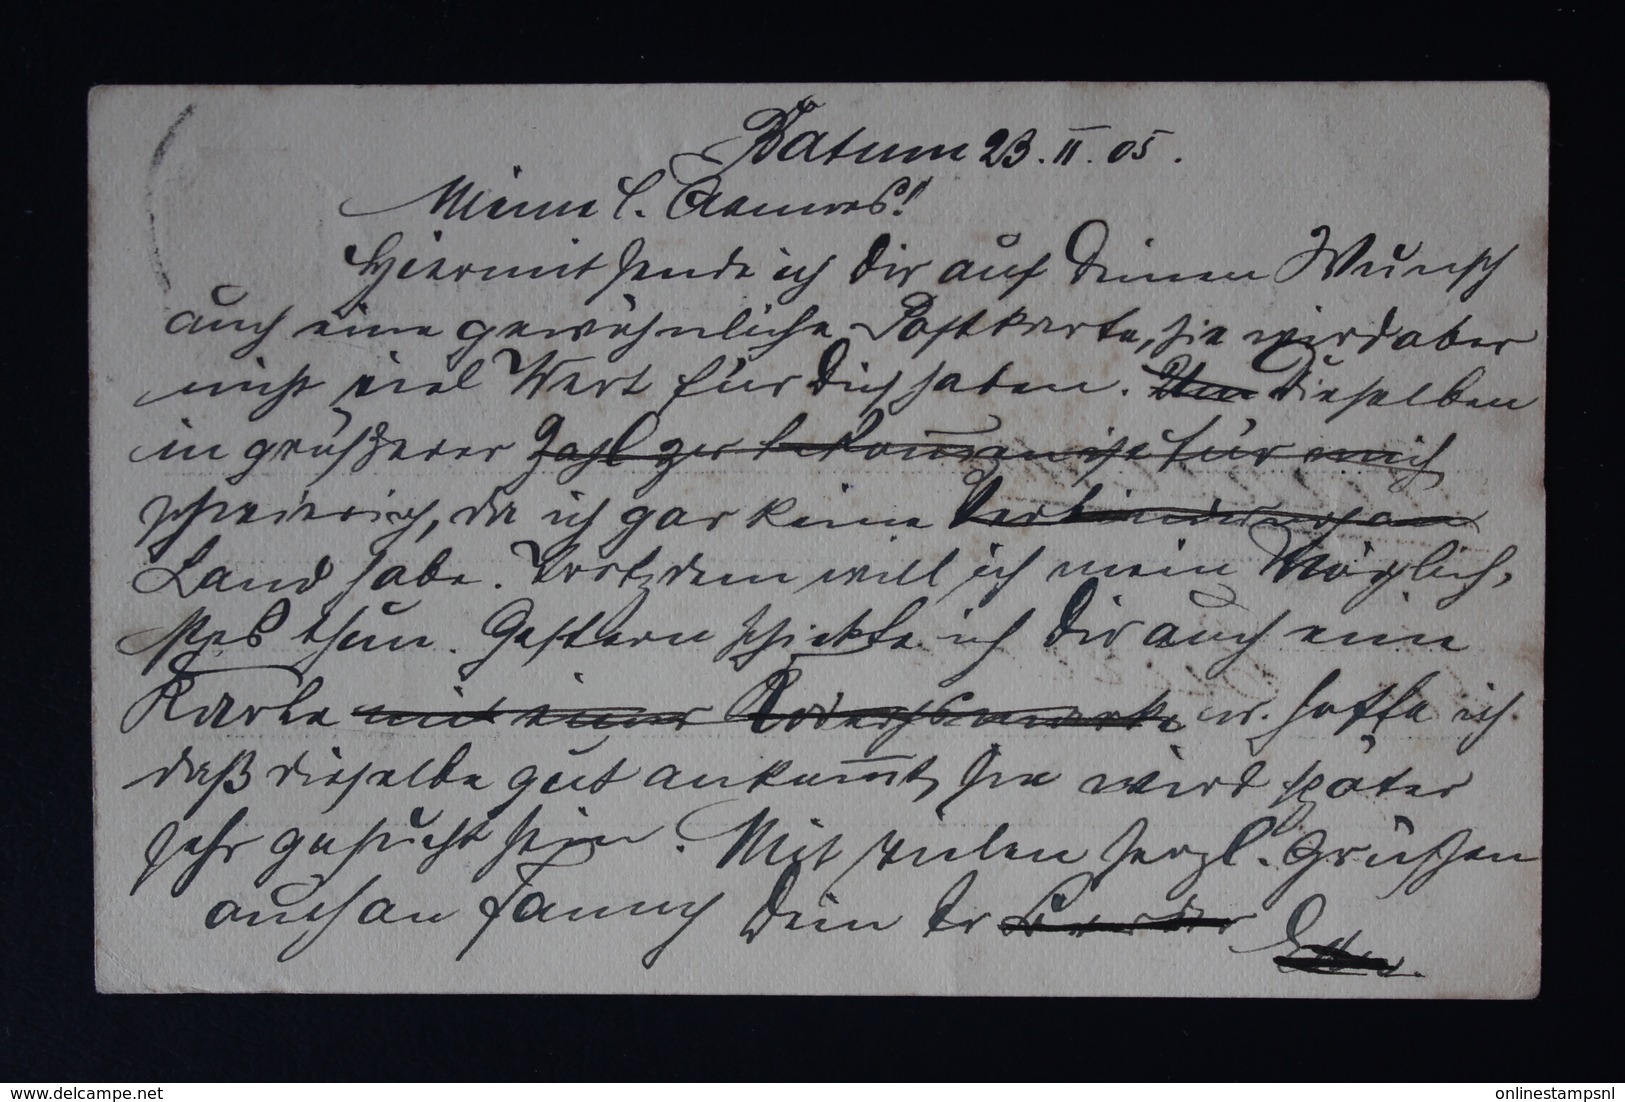 Batum 23.II.05.
Meine l.
Hiermit sende ich Dir auf Deinen Wunsch
auch eine gewöhnliche Postkarte, sie wird aber
nicht viel Wert für Dich haben. Um Dieselben
in größerer Zahl zu bekommen ist für mich
schwierig, da ich gar keine Verbindung am
Land habe. Trotzdem will ich mein Möglich-
stes thun. Gestern schickte ich Dir auch eine
Karte mit einer u. hoffe ich
daß dieselbe gut ankommt, sie wird später
sehr gesucht sein. Mit vielen herzl. Grüßen
auch an Fanny Dein tr Bruder
onlinestampsnl